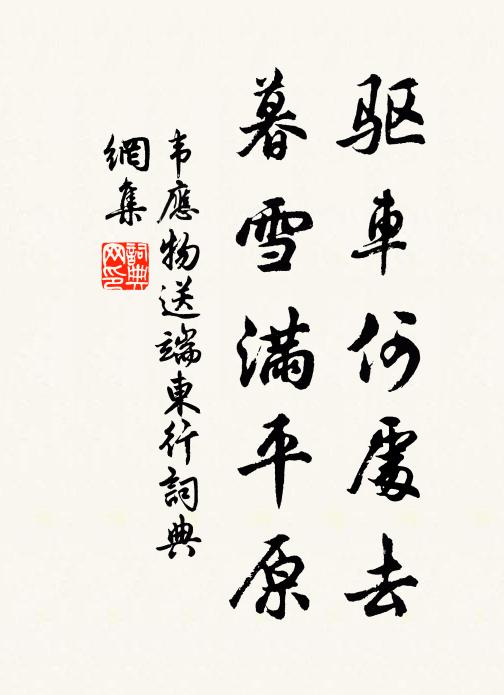 驱車何處去
暮雪满平原
韦應物送端東行詞典
網集
詞典
网印